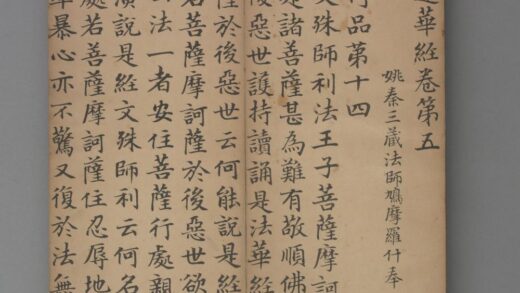 華經卷第五
姚秦三藏法師鳩摩羅什奉
行品第十四
文殊師利法王子菩薩摩訶
是諸菩薩甚為難有敬順佛
後惡世護持讀誦是法華經
薩於後惡世云何能說是經
若菩薩摩訶薩於後惡世欲
法一者安住菩薩行處親
演說是經文殊師利云何名
處若菩薩摩訶薩住忍辱地
暴心亦不驚又復於法無